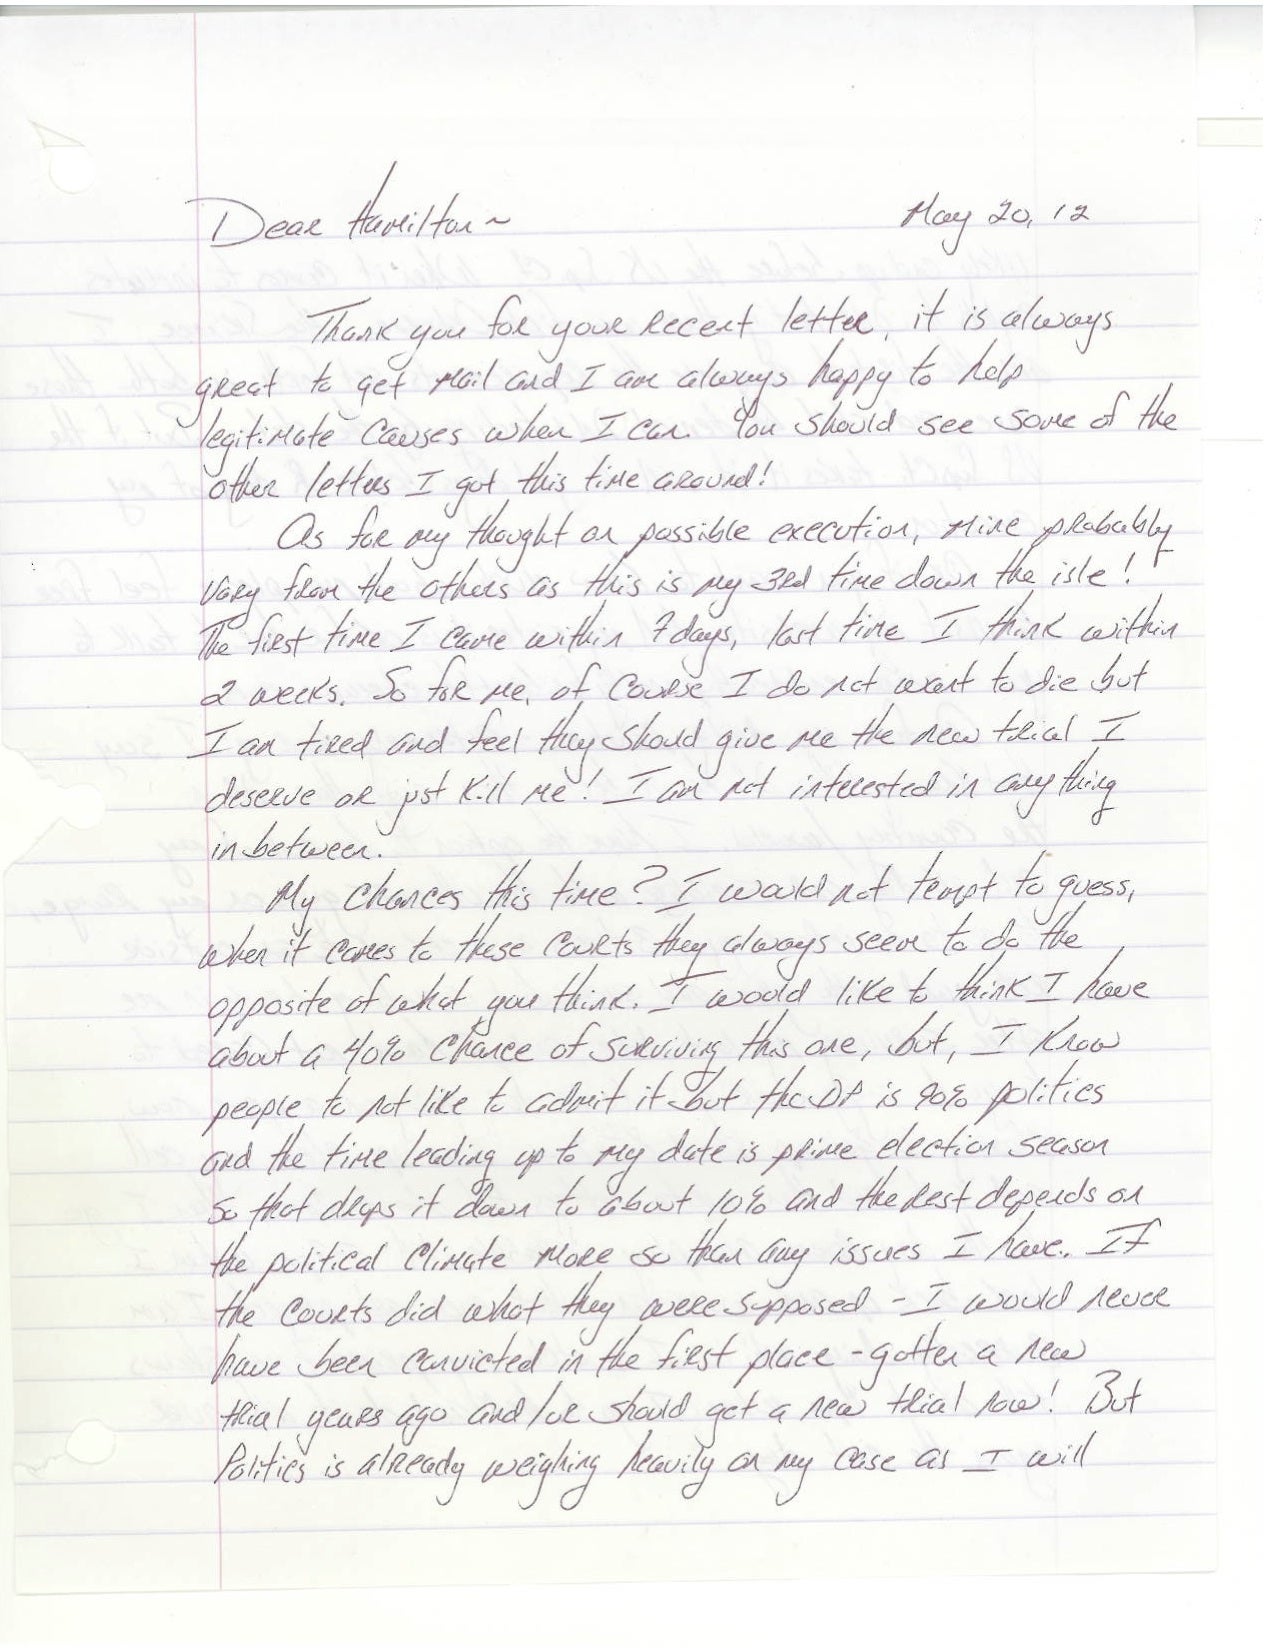 Dear Hamilton~ May 20, 12
Thank you for your recent letter, it is always
great to get mail and I am always happy to help
legitimate causes when I can. You should see some of the
other letters I got this time around!
As for my thought on possible execution, mine probably
vary from the others as this is my 3rd time down the isle!
The first time I came within 7 days, last time I think within
2 weeks. So for me, of course I do not want to die but
I am tired and feel they should give me the new trial I
deserve or just kill me! I am not interested in anything
in between.
My chances this time? I would not tempt to guess,
when it comes to these courts they always seem to do the
opposite of what you think. I would like to think I have
about a 40% chance of surviving this one, but, I know
people to not like to admit it but the DP is 90% politics
and the time leading up to my date is prime election season
so that drops it down to about 10% and the rest depends on
the political climate more so than any issues I have. If
the courts did what they were supposed - I would never
have been convicted in the first place - gotten a new
trial years ago and/or should get a new trial now! But
Politics is already weighing heavily on my case as I will